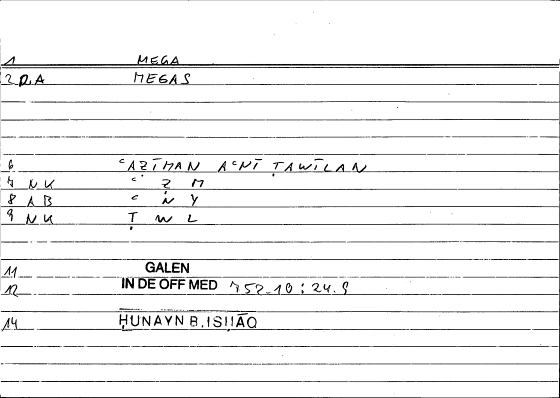 1 MEGA
2 DA MEGAS
6 ʿAẒĪMAN AʿNĪ ṬAWĪLAN
7 NK ʿ Ẓ M
8 AB ʿ N Y
9 NK Ṭ W L
11 GALEN
12 IN DE OFF MED 752-10 : 24.9
14 ḤUNAYN B. ISḤĀQ